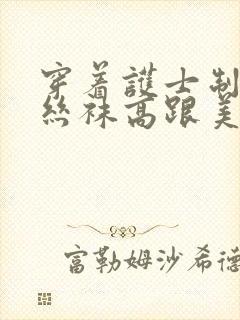 穿着護士制
絲袜高跟美
富勒姆沙希德